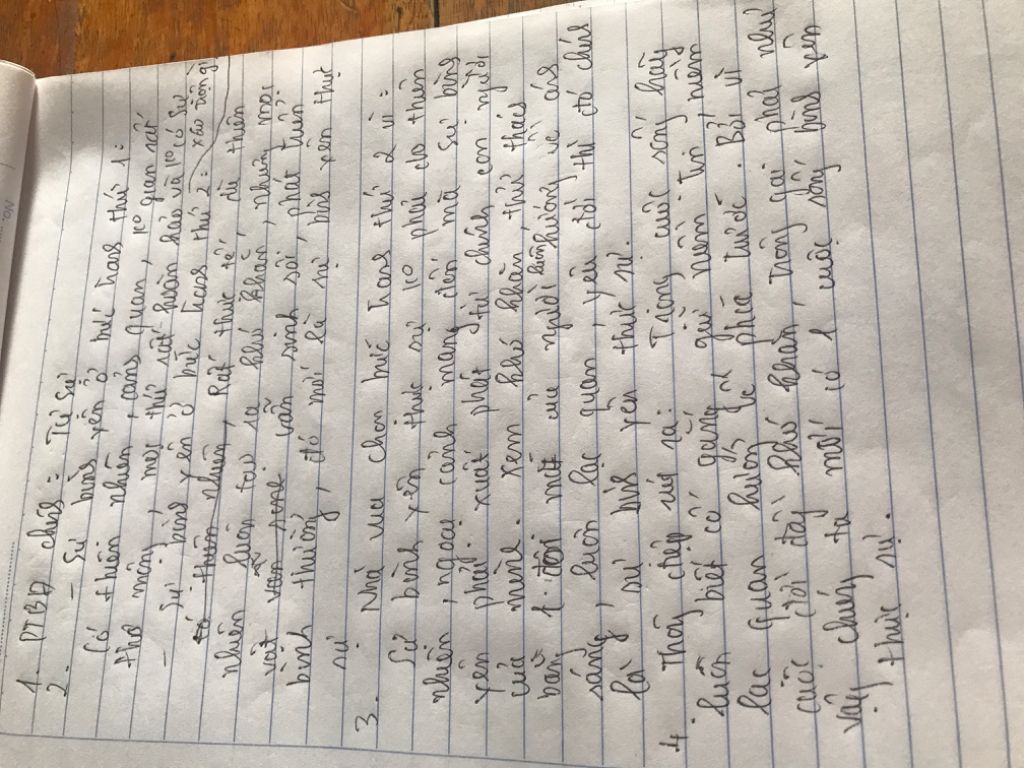 1. PTBĐ chính: Tự sự
2. - Sự bình yên ở bức tranh thứ 1:
Có thiên nhiên, cảnh quan, ko gian rất
thơ mộng, mọi thứ rất hoàn hảo và ko có sự
- Sự bình yên ở bức tranh thứ 2: xáo động gì
thiên nhiên, Rất thực tế, dù thiên
nhiên luôn tạo ra khó khăn, nhưng mọi
vật vẫn sinh sôi, phát triển
bình thường, đó mới là sự bình yên thực
sự
3. Nhà vua chọn bức tranh thứ 2 vì:
Sự bình yên thực sự ko phải do thiên
nhiên, ngoại cảnh mang đến mà sự bình
yên phải xuất phát từ chính con người
của mình. Xem khó khăn thử thách
bằng 1 đôi mắt của người luôn hướng về ánh
sáng, luôn lạc quan, yêu đời thì đó chính
là sự bình yên thực sự.
4. Thông điệp rút ra: Trong cuộc sống hãy
luôn biết cố gắng giữ niềm tin, niềm
lạc quan hướng về phía trước. Bởi vì
cuộc đời đầy khó khăn, trông gai phải như
vậy chúng ta mới có 1 cuộc sống bình yên
thực sự.